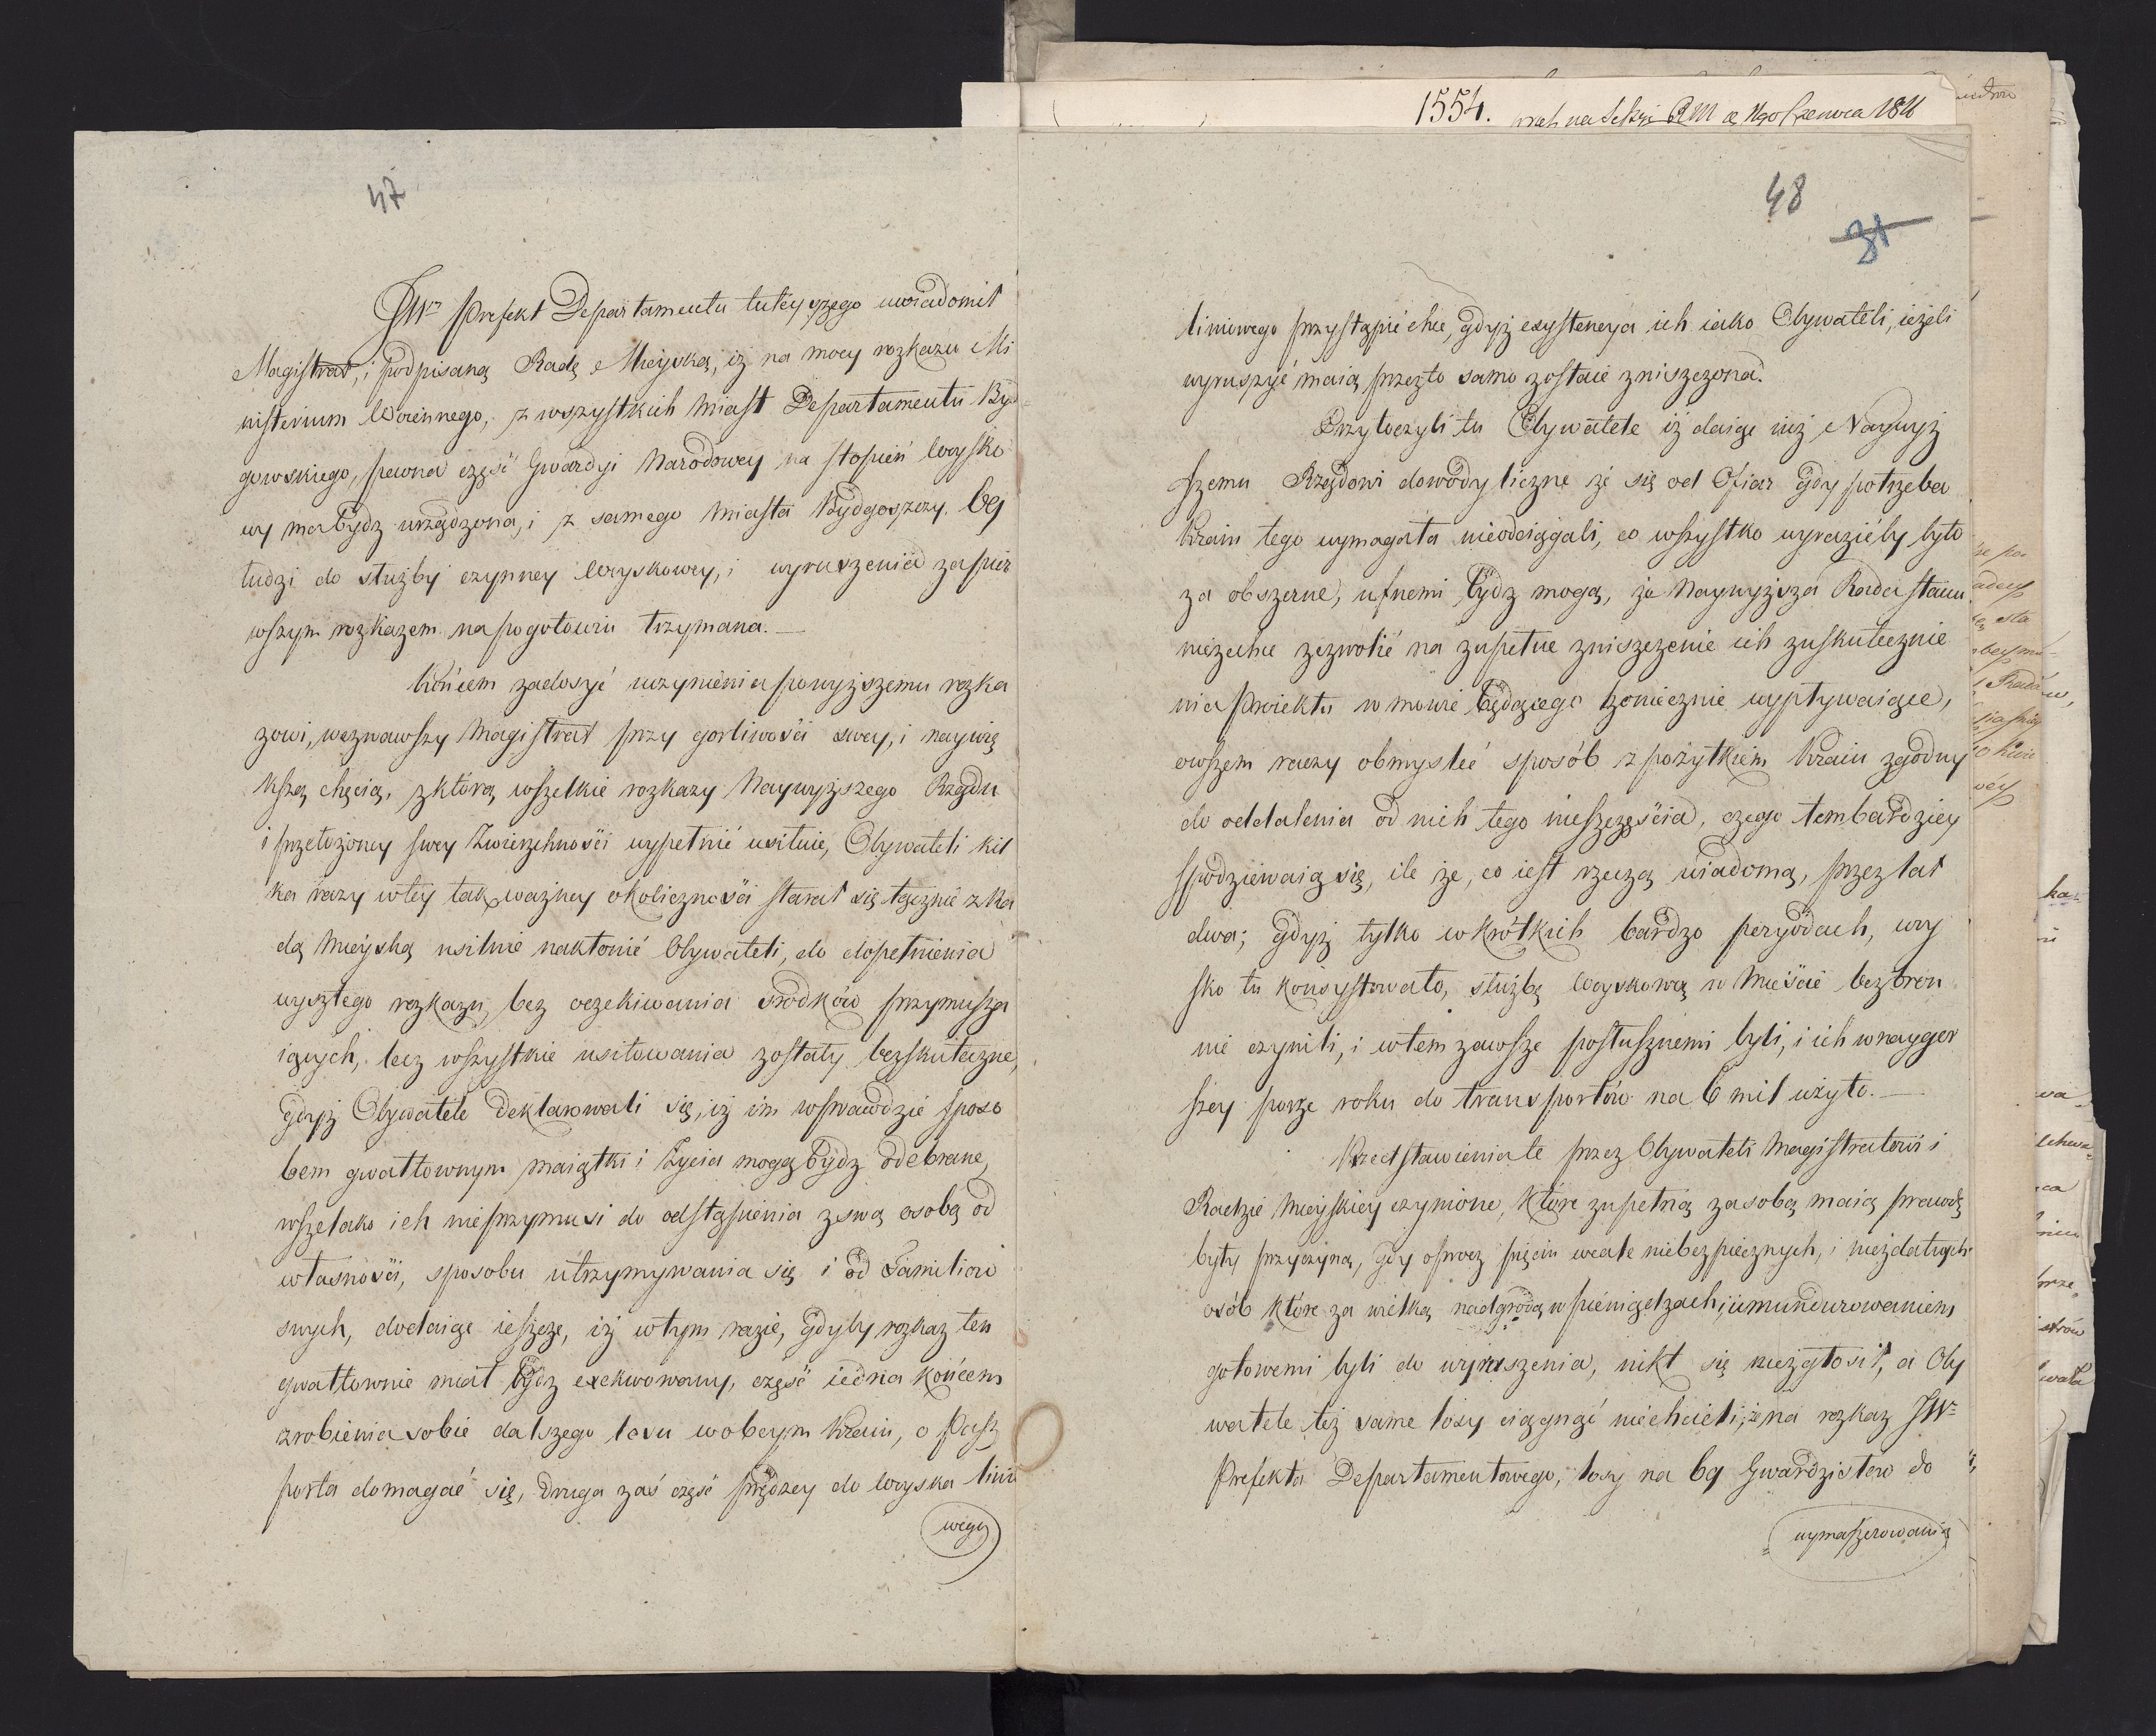 47
JWny Prefekt Departamentu tuteyszego uwiadomił
Magistrat, i podpisaną Radę Mieyską, iż na mocy rozkazu Mi
nisterium Woiennego, z wszystkich Miast Departamentu Byd
gowskiego, pewna część Gwardyi Narodowey na stopień woysko
wy ma bydz urządzona, i z samego Miasta Bydgoszczy, 69
ludzi do służby czynney woyskowey, i wyruszenia za pier
wszym rozkazem na pogotowiu trzymana.—
Końcem zadosyć uczynienia powyższemu rozka
zowi, wezwawszy Magistrat przy gorliwości swey, i naywię
kszą chęcią, z którą wszelkie rozkazy Naywyższego Rządu
i przełożoney swey Zwierzchności wypełnić usiłuie, Obywateli kil
ka razy w tey tak ważney okoliczności starał się łącznie z Ra
dą Mieyską usilnie nakłonić Obywateli, do dopełnienia
wyszłego rozkazu, bez oczekiwania srodków przymusza
iących, lecz wszystkie usiłowania zostały bezskuteczne,
gdyż Obywatele deklarowali się, iż im wprawdzie sposo
bem gwałtownym maiątki i życia mogą bydz odebrane,
wszelako ich nieprzymusi do odstąpienia z swą osobą od
własności, sposobu utrzymywania się i od Familiow
swych, dodaiąc ieszcze, iż w tym razie, gdyby rozkaz ten
gwałtownie miał bydz exekwowany, część iedna końcem
zrobienia sobie dalszego losu w obcym Kraiu, o Pasz
porta domagać się, druga zaś część prędzey do woyska linio
wego
1554.
na Sekcyi RM d. Czerwca 1811
48
31
liniowego przystąpić chce, gdyż exystencya ich iako Obywateli, ieżeli
wyruszyć maią przez to samo zostaie zniszczona.
Przytoczyli tu Obywatele iż daiąc iuż Naywyż
szemu Rządowi dowody liczne że się od Ofiar gdy potrzeba
Kraiu tego wymagała nieodciągali, co wszystko wyrazić by było
za obszerne, ufnemi bydz mogą, że Naywyższa Rada Stanu
niezechce zezwolić na zupełne zniszczenie ich z uskutecznie
nia Proiektu w mowie będącego koniecznie wypływaiące,
owszem raczy obmysleć sposób z pożytkiem Kraiu zgodny
do oddalenia od nich tego nieszczęścia, czego tembardziey
spodziewaią się, ile że, co iest rzeczą wiadomą, przez lat
dwa; gdyż tylko w krótkich bardzo peryodach, woy
sko tu konsystowało, służbę woyskową w Mieście bezbron
nie czynili, i w tem zawsze posłusznemi byli, i ich w naygor
szey porze roku do transportów na 6 mil użyto.—
Przedstawienia te przez Obywateli Magistratowi i
Radzie Mieyskiey czynione, które zupełną za sobą maią prawdę
były przyczyną, gdy oprocz pięciu wcale niebezpiecznych, i niezdatnych
osób które za wielką nadgrodą w pieniądzach, i umundurowaniem
gotowemi byli do wyruszenia, nikt się niezgłosił, a Oby
watele też same losy ciągnąć niechcieli, że na rozkaz JWo
Prefekta Departamentowego, losy na 69 Gwardzistow do
wymaszerowania